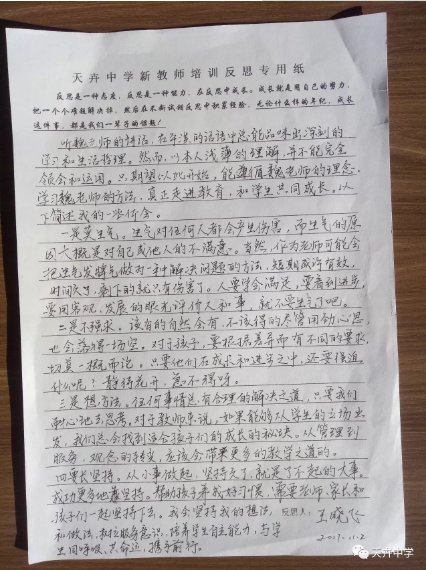 天卉中学新教师培训反思专用纸
反思是一种态度，反思是一种能力，在反思中成长。成长就是用自己的努力，
把一个个难题解决掉，然后在不断试错反思中积累经验，无论什么样的年纪，成长
这件事，都是我们一辈子的课题！
听魏老师的讲话，在平淡的话语中总能品味出深刻的
学习和生活哲理。然而，以本人浅薄的理解，并不能完全
领会和运用。只期望以此开始，能遵循魏老师的理念，
学习魏老师的方法，真正走进教育，和学生共同成长。以
下简述我的一些体会。
一是莫生气。生气对任何人都会产生伤害，而生气的原
因大概是对自己或他人的不满意。当然，作为老师可能会
把生气发脾气做为一种解决问题的方法，短期或许有效，
时间久了，剩下的就只有伤害了。人要学会满足，要看到进步，
要用客观、发展的眼光评价人和事，就不要生气了吧。
二是不强求。该有的自然会有，不该得的尽管用劲心思
也会落得一场空。对于孩子，要根据差异而有不同的要求，
切莫一概而论。只要他们在成长和进步之中，还要强迫
什么呢？静待花开，急不得呀。
三是想方法。任何事情总有合理的解决之道，只要我们
耐心地去思考，对于教师来说，如果能够从学生的立场出
发，我们总会找到适合孩子们的成长的秘诀。从管理到
服务，观念的转变，应该会带来更多的教学之道的。
四要长坚持。从小事做起，坚持久了，就是了不起的大事。
成功更多地靠坚持。帮助孩子养成好习惯，需要老师、家长和
孩子们一起坚持下去。我会坚持我的想法，反思人：王晓飞
和做法，树立服务意识，培养学生自主能力，与学 2021.11.2
生同呼吸、共命运，携手前行。
天卉中学